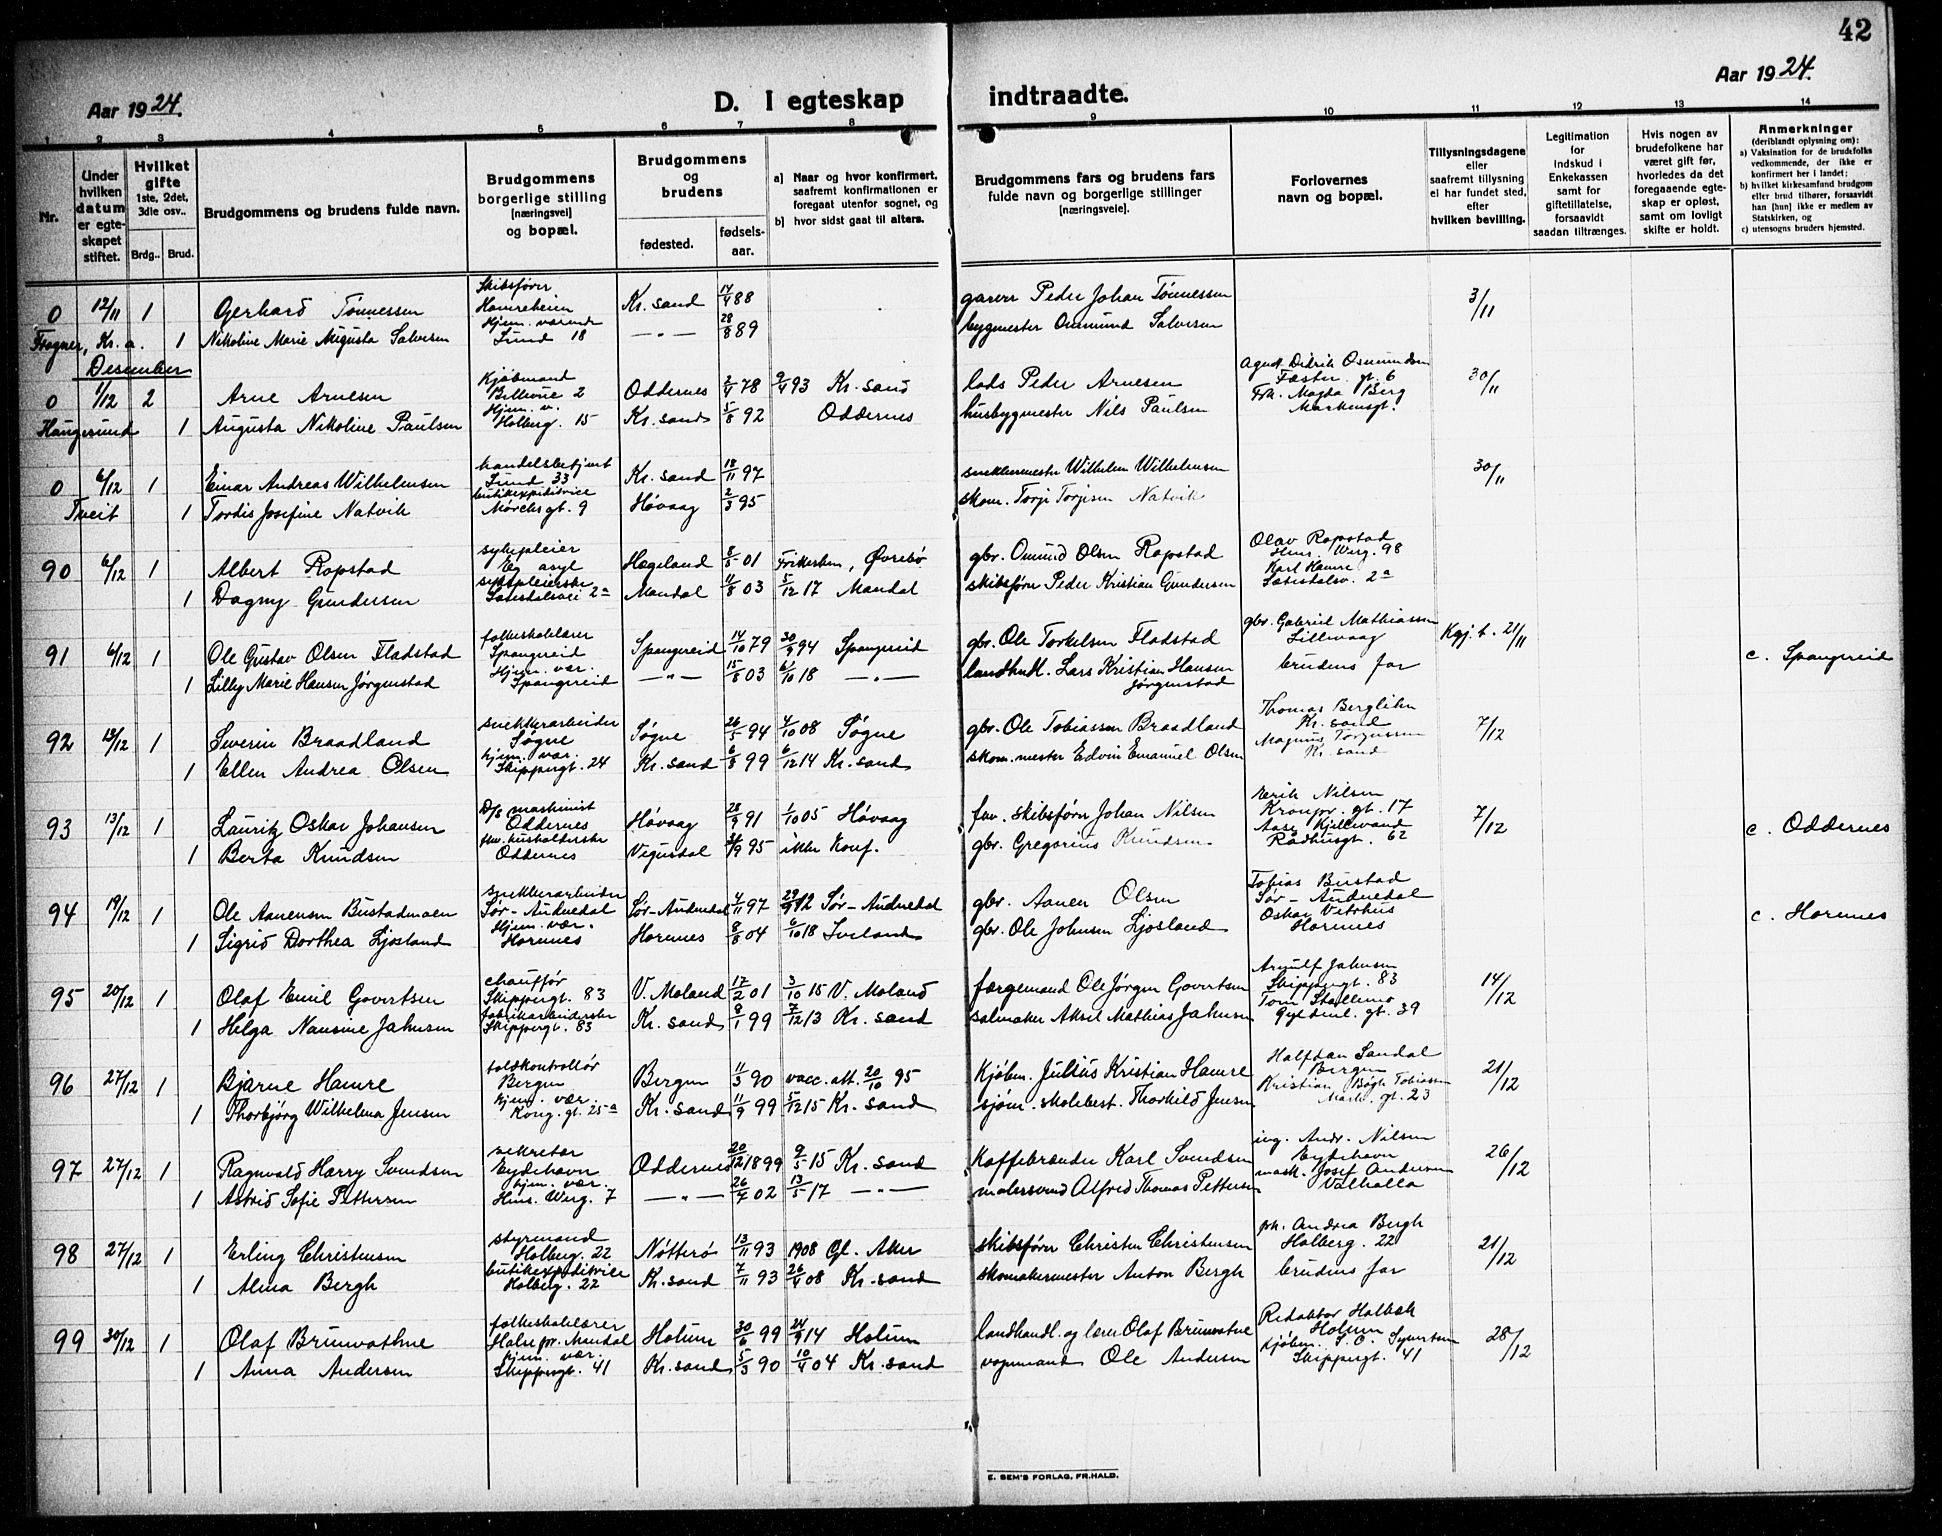 42
Aar 1924.
D. I egteskap indtraadte.
Aar 1924.
1 2 3 4 5 6 7 8 9 10 11 12 13 14
Nr.
Under hvilken datum er egteskapet stiftet.
Hvilket gifte 1ste, 2det, 3die osv..
Brdg.. Brud.
Brudgommens og brudens fulde navn.
Brudgommens borgerlige stilling [næringsvei] og bopæl.
Brudgommens og brudens
fødested. fødselsaar.
a] Naar og hvor konfirmert, saafremt konfirmationen er foregaat utenfor sognet, og
b] hvor sidst gaat til alters.
Brudgommens fars og brudens fars fulde navn og borgerlige stillinger [næringsveie].
Forlovernes navn og bopæl.
Tillysningsdagene eller saafremt tillysning ei har fundet sted, efter hvilken bevilling.
Legitimation for Indskud i Enkekassen samt for giftetillatelse, forsaavidt saadan tiltrænges.
Hvis nogen av brudefolkene har været gift før, hvorledes da det foregaaende egteskap er opløst, samt om lovligt skifte er holdt.
Anmerkninger (deriblandt oplysning om):
a) Vaksination for de brudefolks vedkommende, der ikke er konfirmert her i landet;
b) hvilket kirkesamfund brudgom eller brud tilhører, forsaavidt han [hun] ikke er medlem av Statskirken, og
c) utensogns bruders hjemsted.
0 12/11 1 Gerhard Tønnessen Skibsfører Hamreheien Kr. sand 14/4 88 garver Peder Johan Tønnessen 3/11
Frogner, Kr.a. 1 Nikoline Marie Augusta Salvesen Hjem. værende Lund 18 —"— 28/8 89 bygmester Osmund Salvesen
Desember
0 1/12 2 Arne Arnesen Kjøbmand Bellevue 2 Oddernes 2/4 78 9/4 93 Kr. sand lods Peder Arnesen Agent Didrik Osmundsen Fæstn. gt. 6 30/11
Haugesund 1 Augusta Nikoline Paulsen Hjem. v. Holberg. 15 Kr. sand 5/8 92 Oddernes husbygmester Nils Paulsen Frk. Magda Berg Markensgt.
0 6/12 1 Einar Andreas Wilhelmsen handelsbetjent Lund 33 Kr. sand 18/11 97 snekkermester Wilhelm Wilhelmsen 30/11
Tveit 1 Tordis Josefine Natvik butikexpeditrice Mørchsgt. 9 Høvaag 2/3 95 skom. Torje Torjesen Natvik
90 6/12 1 Albert Ropstad sykepleier Eg asyl Hægeland 8/5 01 Frikirken, Øvrebø gbr. Osmund Olsen Ropstad Olav Ropstad Henr. Werg. 98
1 Dagny Gundersen sykepleierske Sætesdalsvei 2a Mandal 11/8 03 5/12 17 Mandal skibsfører Peder Kristian Gundersen Karl Hamre Sætesdalsv. 2a
91 6/12 1 Ole Gustav Olsen Fladstad folkeskolelærer Spangereid Spangereid 14/10 79 30/9 94 Spangereid gbr. Ole Torkelsen Fladstad gbr. Gabriel Mathiassen Lillevaag Kgj. t. 21/11 c. Spangereid
1 Lilly Marie Hansen Jørgenstad Hjem. vær. Spangereid —"— 15/8 03 6/10 18 —"— landhndl. Lars Kristian Hansen Jørgenstad brudens far
92 13/12 1 Severin Braadland snekkerarbeider Søgne Søgne 26/5 94 4/10 08 Søgne gbr. Ole Tobiassen Braadland Thomas Berglihn Kr. sand 7/12
1 Ellen Andrea Olsen hjem. vær. Skippergt. 24 Kr. sand 6/8 99 6/12 14 Kr. sand skom. mester Edvin Emanuel Olsen Magnus Torjussen Kr. sand
93 13/12 1 Lauritz Oskar Johansen D/s maskinist Oddernes Høvaag 28/9 91 1/10 05 Høvaag fhv. skibsfører Johan Nilsen Erik Nilsen Kronpr. gt. 17 7/12 c. Oddernes
1 Berta Knudsen fhv. husholderske Oddernes Vegusdal 95 ikke konf. gbr. Gregorius Knudsen Aase Kjillevand Radhusgt. 62
94 19/12 1 Ole Aanensen Bustadmoen snekkerarbeider Sør-Audnedal Sør-Audnedal 4/11 97 29/9 12 Sør-Audnedal gbr. Aanen Olsen Tobias Bustad Sør-Audnedal c. Hornnes
1 Sigrid Dorthea Ljosland Hjem. vær. Hornnes Hornnes 8/8 04 6/10 18 Iveland gbr. Ole Johnsen Ljosland Oskar Vetrhus Hornnes
95 20/12 1 Olaf Emil Govertsen chauffør Skippergt. 83 V. Moland 17/2 01 3/10 15 V. Moland færgemand Ole Jørgen Govertsen Arnulf Jahnsen Skippergt. 83 14/12
1 Helga Nansine Jahnsen fabrikarbeiderske Skippergt. 83 Kr. sand 8/1 99 7/12 13 Kr. sand salmaker Aksel Mathias Jahnsen Tom Stallemo Gyldenl. gt. 39
96 27/12 1 Bjarne Hamre toldkontrollør Bergen Bergen 11/3 90 vacc. att. 20/10 95 Kjøbm. Julius Kristian Hamre Halfdan Sandal Bergen 21/12
1 Thorbjørg Wilhelma Jensen hjem. vær. Kong. gt. 25a Kr. sand 11/9 99 5/12 15 Kr. sand sjøm. skolebest. Thorkild Jensen Kristian Bøgh Tobiassen Mark. gt. 23
97 27/12 1 Ragnvald Harry Svendsen sekretær Eydehavn Oddernes 20/12 1899 9/5 15 Kr. sand Kaffebrænder Karl Svendsen ing. Andr. Nilsen Eydehavn 26/12
1 Astrid Sofie Pettersen hjem. vær. Henr. Werg. 7 —"— 26/4 02 13/5 17 —"— malersvend Alfred Thomas Pettersen mask. Josef Andersen Valhalla
98 27/12 1 Erling Christensen styrmand Holberg. 22 Nøtterø 13/11 93 1908 Gl. Aker skibsfører Christen Christensen frk. Andrea Bergh Holberg. 22 21/12
1 Alma Bergh butikexpeditrice Holberg. 22 Kr. sand 7/11 93 26/4 08 Kr. sand skomakermester Anton Bergh brudens far
99 30/12 1 Olaf Brunvathne folkeskolelærer Halse pr. Mandal Holum 30/6 99 24/9 14 Holum landhandl. og lærer Olaf Brunvatne Redaktør Holbæk Holum 28/12
1 Anna Andersen hjem. vær. Skippergt. 41 Kr. sand 5/3 90 10/4 04 Kr. sand vognmand Ole Andersen kjøbm. S. O. Syvertsen Skippergt. 41
E. SEM'S FORLAG, FR.HALD.